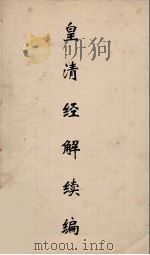 皇
清
经
解
续
编
mtoou.info